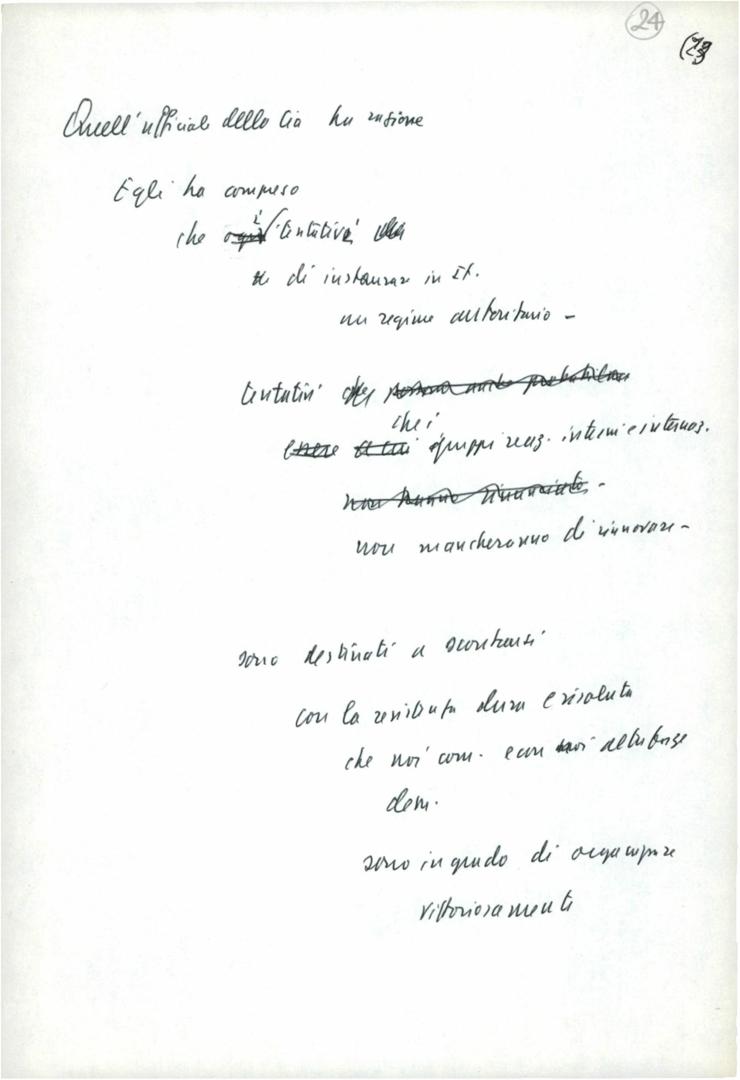 24
Quell'ufficiale della Cia ha ragione
Egli ha compreso
che ogni i tentativi
di instaurare in It.
un regime autoritario -
tentativi che
che i
essere a cui gruppi reaz. interni e internaz.
non hanno rinunciato -
non mancheranno di rinnovare -
sono destinati a scontrarsi
con la resistenza dura e risoluta
che noi com. e con noi altre forze
dem.
sono in grado di organizzare
vittoriosamente